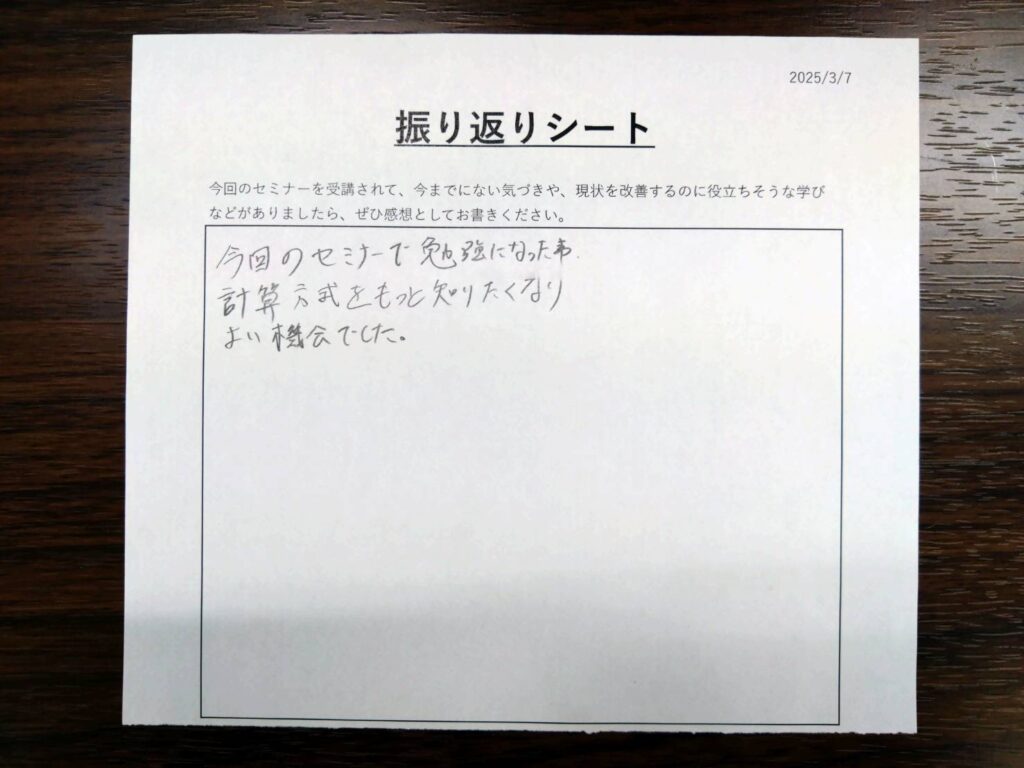 2025/3/7
振り返りシート
今回のセミナーを受講されて、今までにない気づきや、現状を改善するのに役立ちそうな学び
などがありましたら、ぜひ感想としてお書きください。
今回のセミナーで勉強になった事.
計算方式をもっと知りたくなり
よい機会でした。